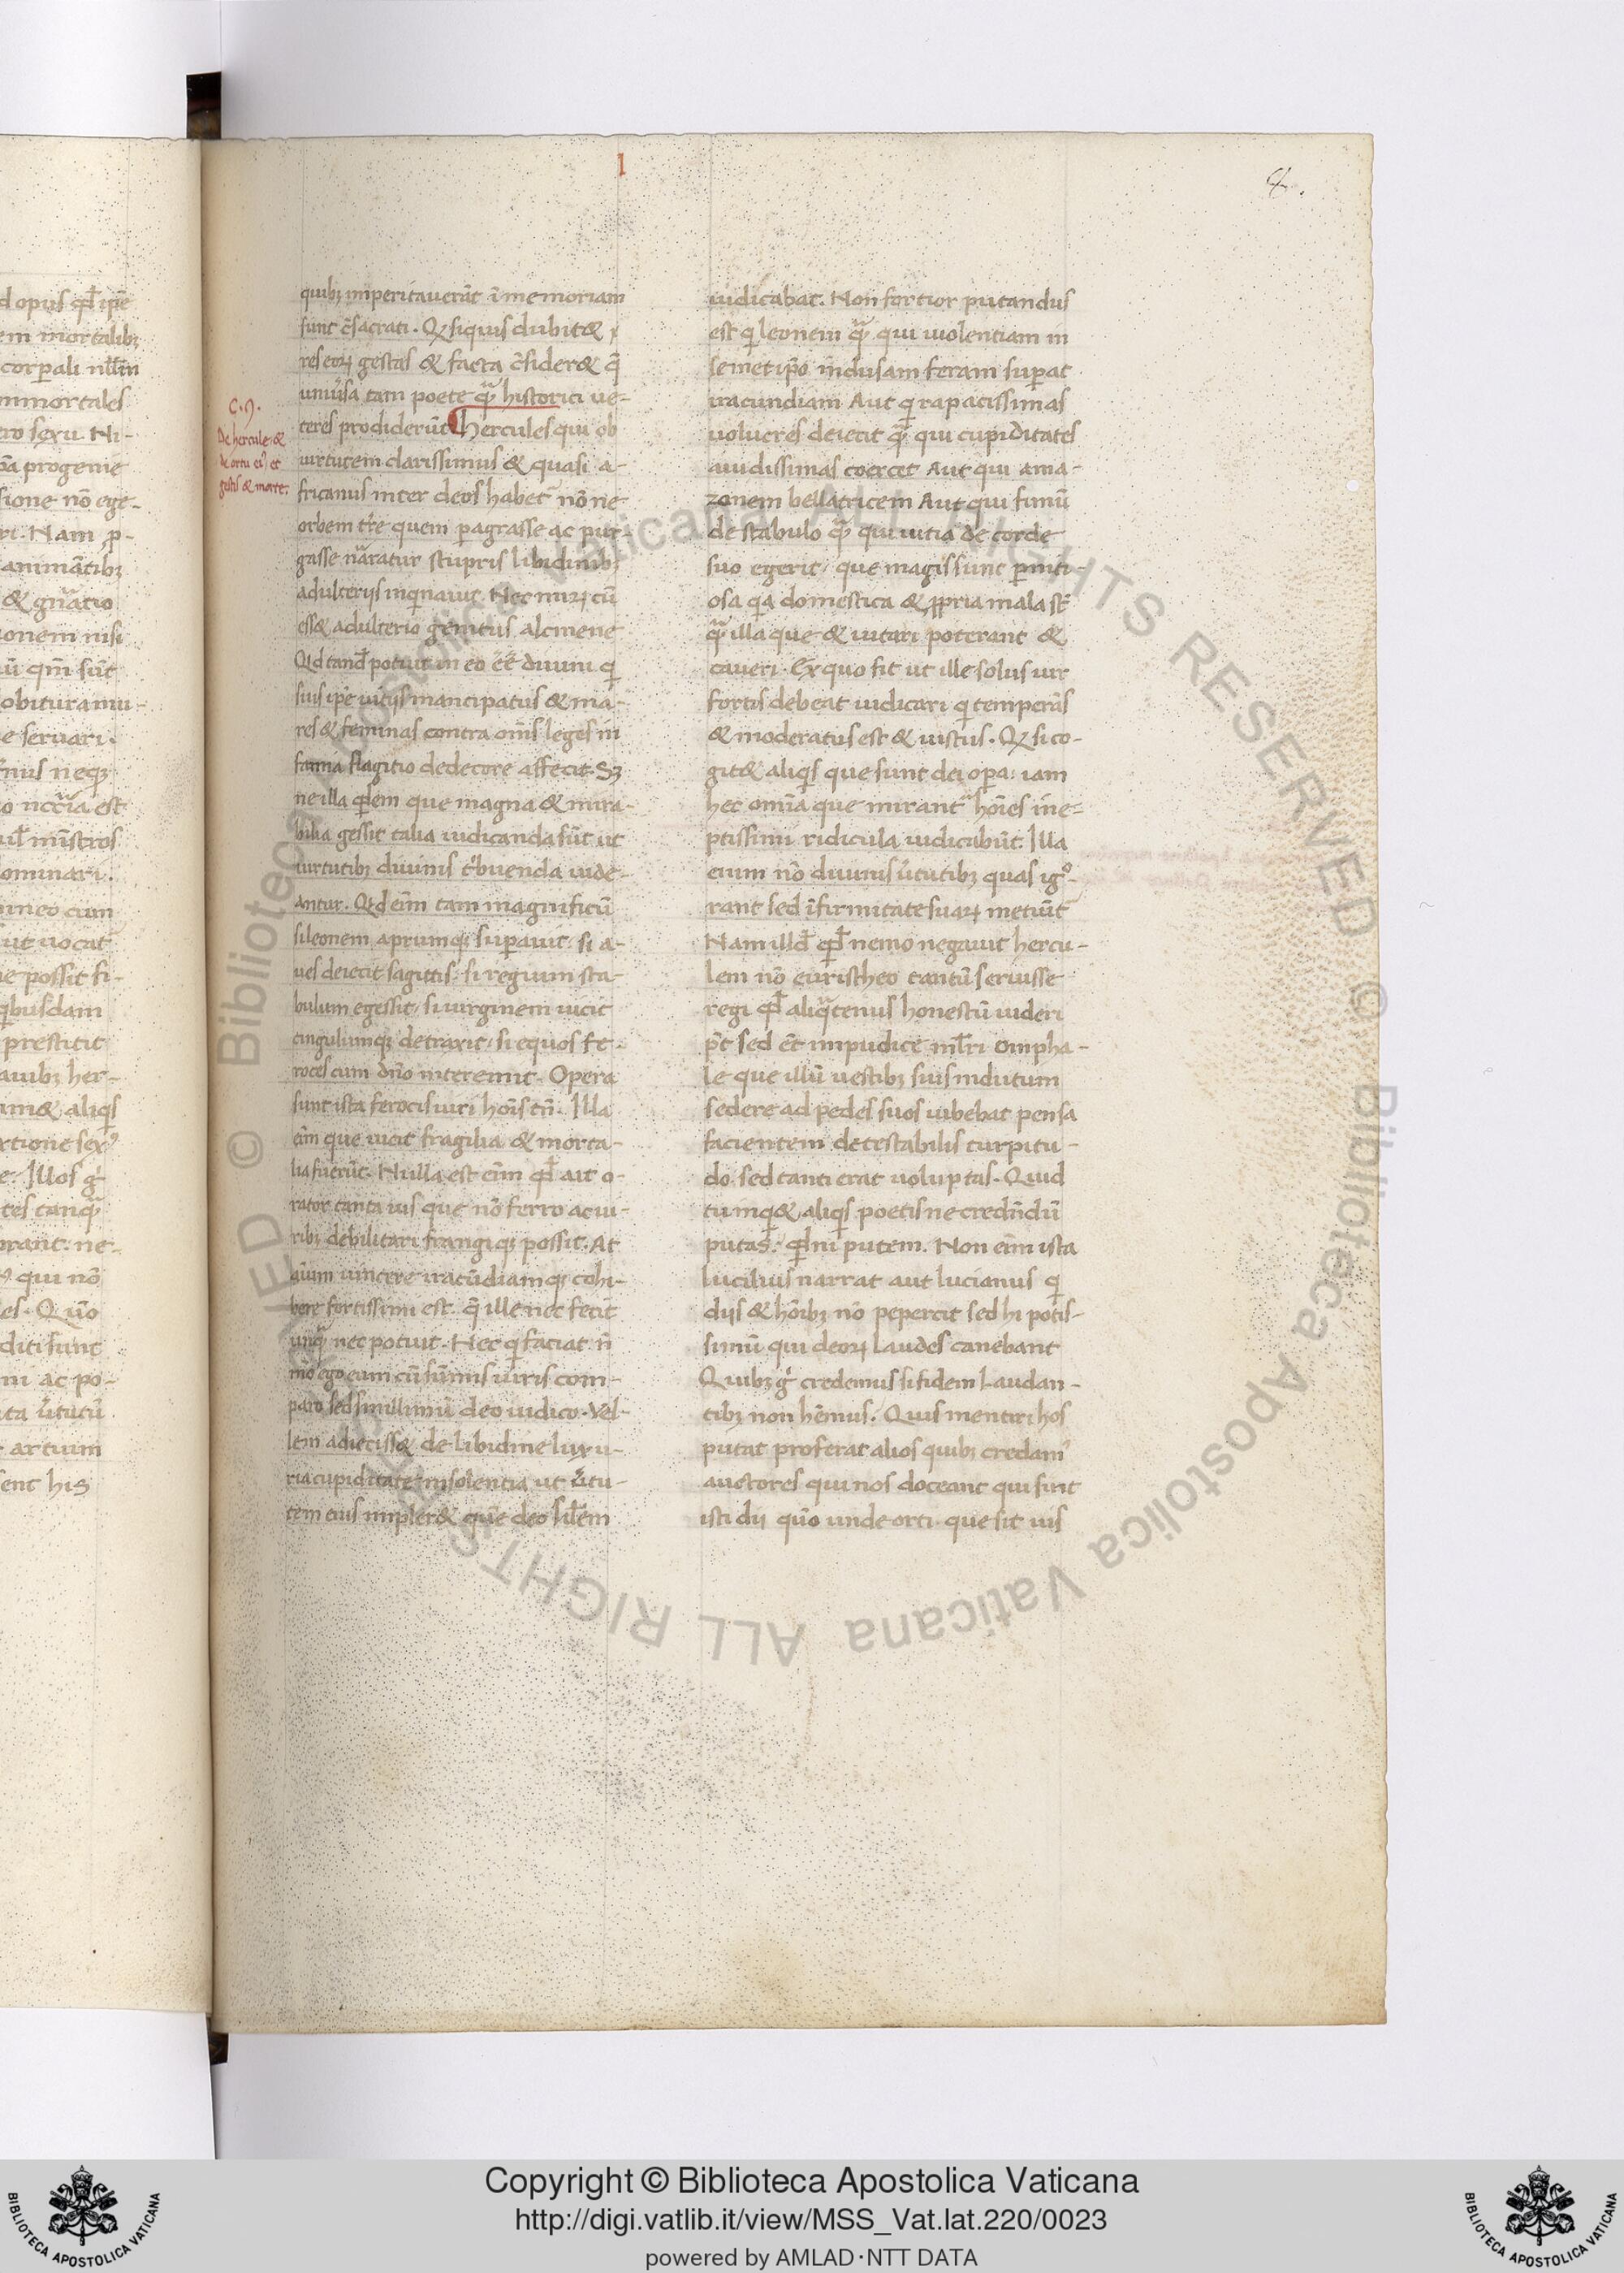 I
8.
d opus qd̄ ipē
em mortalibꝫ
corꝑali nll̄m
mmortales
ero sexu. Ni-
progenie
sione nō ege-
ri. Nam ꝓ-
animātibꝫ
& gn̄atio
onem nisi
ū qm̄ sūt
obitura mu-
e seruari.
neqꝫ
o nccīa est
mīstros
ominari.
meo cum
ut uocat
e possit fi-
q̇busdam
prestitit
auibꝫ her-
im& aliqͥs
rtione
e. Illos gͥ
tes tanqͣ̄
orant. ne-
qui nō
es. Quō
diti sunt
ni ac po-
ta ūtutū
artium
sent his
C. 9.
De hercule &
de ortu eiꝰ et
gestis & morte.
quibꝫ imperitauerāt ī memoriam
sunt c̄sacrati. Qꝫ siquis dubit&
res eoꝝ gestas & facta c̄sider& q̄
uniūsa tam poete qͣ̄ historici ue-
teres prodiderūt Hercules qui ob
uirtutem clarissimus & quasi a-
fricanus inter deos habet̄ nō ne
orbem tr̄e quem ꝑagrasse ac pur-
gasse nāratur stupris libidinibꝫ
adulterijs inqͥnauit. Nec miꝝ cū
ess& adulterio genitus alcmene
Qd tand̄ potuit in eo ēē diuini qͥ
suis ip̄e uitijs mancipatus & ma-
res & feminas contra om̄s leges in
famia flagitio dedecore affecit. Sꝫ
ne illa qͥdem que magna & mira-
bilia gessit talia iudicanda sūt ut
uirtutibꝫ diuinis tͥbuenda uide-
antur. Qd eīm tam magnificū
si leonem aprumqꝫ suꝑauit. si a-
ues deiecit sagittis. si regium sta-
bulum egessit. si uirginem uicit
cingulumqꝫ detraxit. si equos fe-
roces cum dn̄o interemit. Opera
sunt ista ferocis uiri hōis tn̄. Illa
eīm que uicit fragilia & morta-
lia fuerūt. Nulla est eīm qd̄ ait o-
rator tanta uis que nō ferro ac ui-
ribꝫ debilitari frangi qꝫ possit. At
aīum uincere iracūdiamqꝫ cohi-
bere fortissimi est. q̄ ille nec fecit
unqͣ̄ nec potuit. Nec qͥ faciat n̄
mō ego eum cū sūmis uiris com-
paro sed simillimū deo iudico. Vel-
lem adieciss& de libidine luxu-
ria cupiditate insolentia ut ūtu-
tem eius impler& quē deo sil̄em
iudicabat. Non fortior putandus
est qͥ leonem qͣ̄ qui uiolentiam in
semet ip̄o inclusam feram suꝑat
iracundiam Aut qͥ rapacissimas
uolucres deiecit qͣ̄ qui cupiditates
auidissimas coercet Aut qui ama-
zonem bellatricem Aut qui fimū
de stabulo qͣ̄ qui uitia de corde
suo egerit. que magis sunt ꝑniti-
osa qͥa domestica & ꝓpria mala st̄
qͣ̄ illa que & uitari poterant &
caueri. Ex quo fit ut ille solus uir
fortis debeat iudicari qͥ temperās
& moderatus est & iustus. Qꝫ si co-
git& aliqͥs que sunt dei oꝑa. iam
hec omīa que mirant̄ hōies ine-
ptissimi ridicula iudicabūt. Illa
enim nō diuinis ūtutibꝫ quas igº-
rant sed īfirmitate suaꝝ metiūt̄
Nam illd̄ qd̄ nemo negauit hercu-
lem nō euristheo tantū seruisse
regi qd̄ aliqͣtenus honestū uideri
pt̄ sed ēt impudice ml̄ri ompha-
le que illū uestibꝫ suis indutum
sedere ad pedes suos iubebat pensa
facientem detestabilis turpitu-
do. sed tanti erat uoluptas. Quid
tu inqͥ& aliqͥs poetis ne credēdū
putas. qd̄ni putem. Non eīm ista
lucilius narrat aut lucianus qͥ
dijs & hōibꝫ nō pepercit sed hi potis-
simū qui deoꝝ laudes canebant
Quibꝫ gͥ credemus si fidem laudan-
tibꝫ non hēmus. Quis mentiri hos
putat proferat alios quibꝫ credamꝰ
auctores qui nos doceant qui sint
isti dij quō unde orti. que sit uis
© Biblioteca Apostolica Vaticana ALL RIGHTS RESERVED © Biblioteca Apostolica Vaticana ALL RIGHTS RESERVED
Copyright © Biblioteca Apostolica Vaticana
http://digi.vatlib.it/view/MSS_Vat.lat.220/0023
powered by AMLAD·NTT DATA
BIBLIOTECA APOSTOLICA VATICANA
BIBLIOTECA APOSTOLICA VATICANA